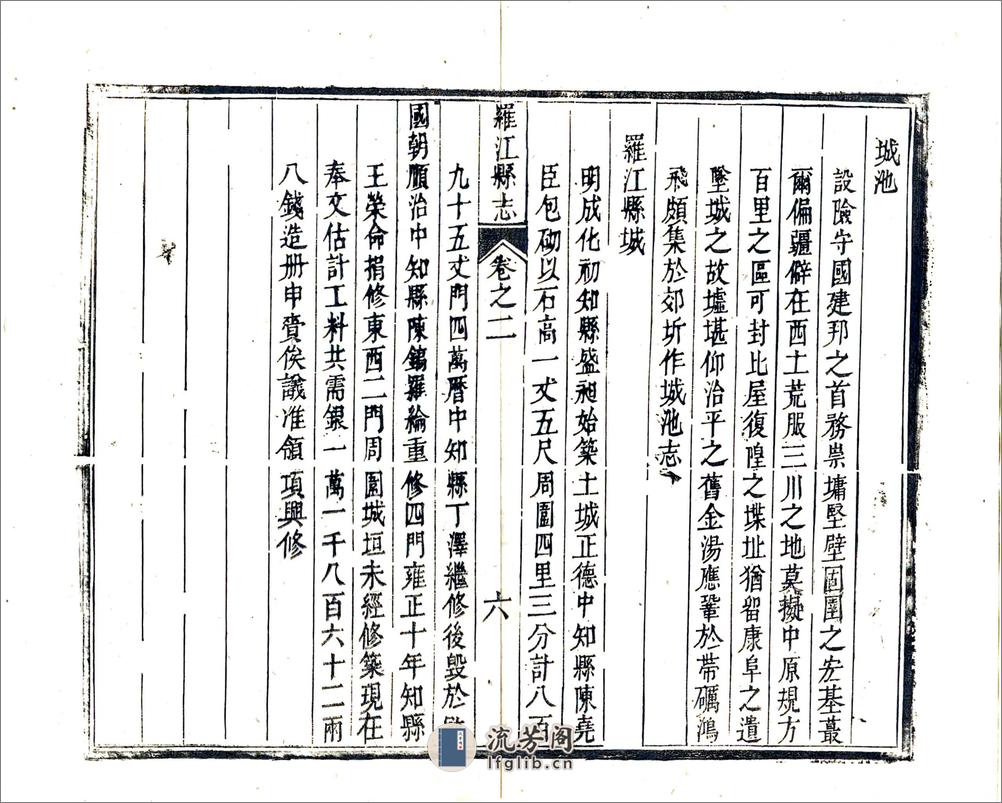 城池
設險守國建邦之首務崇墉堅壁固圉之宏基蕞
爾偏疆僻在西土荒服三川之地莫擬中原規方
百里之區可封比屋復隍之堞址猶留康阜之遺
墜城之故墟堪仰治平之舊金湯應鞏於帶礪鴻
飛頗集於郊圻作城池志
羅江縣城
明成化初知縣盛昶始築土城正德中知縣陳堯
臣包砌以石高一丈五尺周圍四里三分計八百
羅江縣志 卷之二 六
九十五丈門四萬曆中知縣丁澤繼修後毀於
國朝順治中知縣陳鎬羅綸重修四門雍正十年知縣
王榮命捐修東西二門周圍城垣未經修築現在
奉文估計工料共需銀一萬一千八百六十二兩
八錢造册申賫俟議准領項興修
流芳阁
lfglib.cn